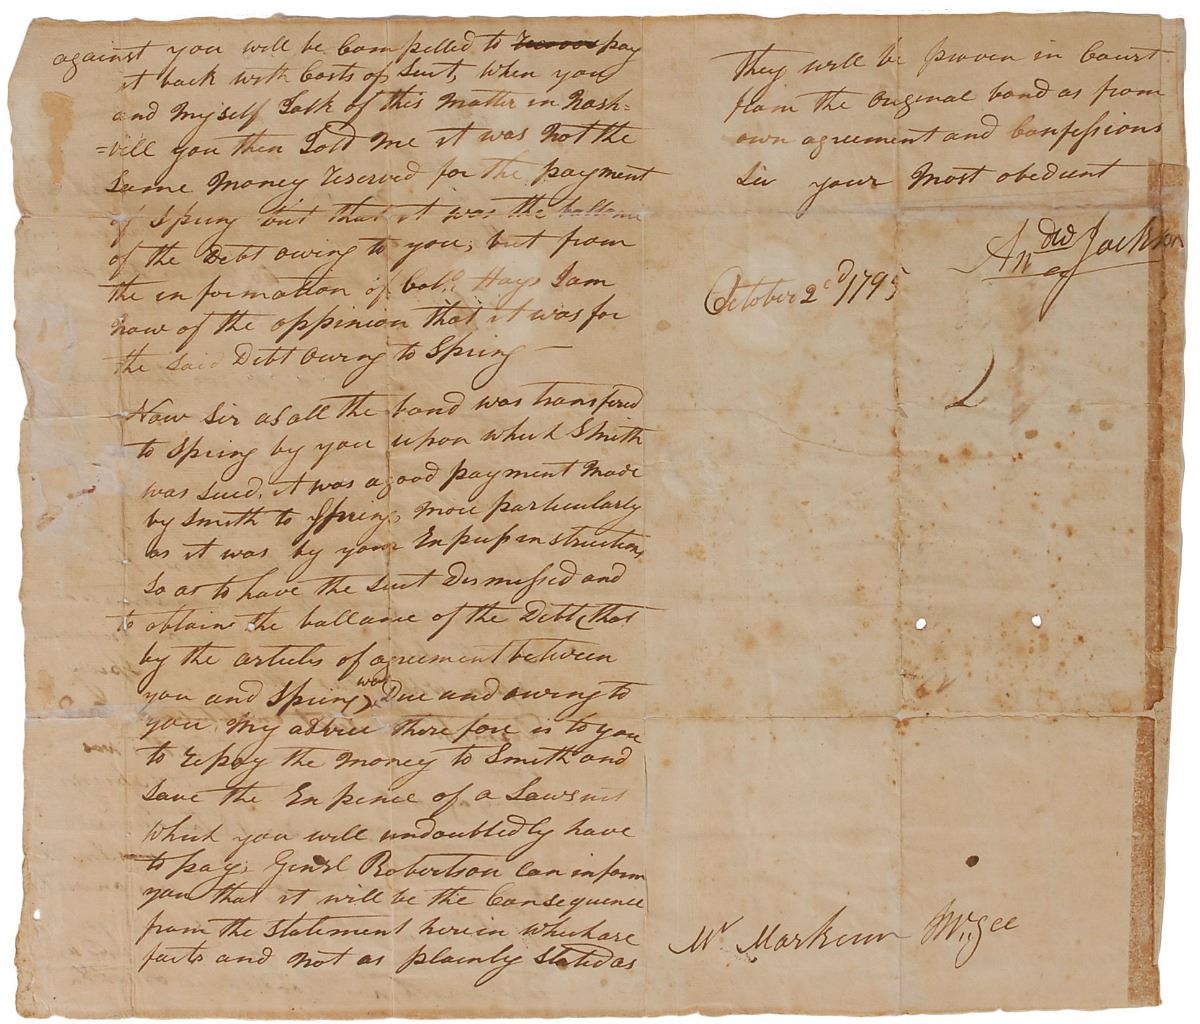 against you will be Compelled to pay
it back with Costs of Suit, When you
and Myself Talk of this Matter in Nash=
=vill you then Told Me it was Not the
Same Money reserved for the payment
of Spring but that it was the ballance
of the Debt owing to you, but from
the information of Colo. Hays I am
now of the oppinion that it was for
the said Debt owing to Spring —
Now Sir as all the bond was transfered
to Spring by you upon which Smith
was Sued. it was a good payment Made
by Smith to Spring, More particularly
as it was by your Express instructions
So as to have the Suit Dismissed and
to obtaine the ballance of the Debt, that
by the articles of agreement between
you and Spring was Due and owing to
you My advice therefore is to you
to repay the Money to Smith and
Save the Expence of a Lawsuit
Which you will undoubtedly have
to pay, Genrl Robertson Can inform
you that it will be the Consequence
from the Statement herein which are
facts and Not as plainly Stated as
They will be proven in Court
from the original bond as from
own agreement and Confessions
Sir your Most obedient
Andw Jackson
October 2cd 1795
Mr Markum McGee